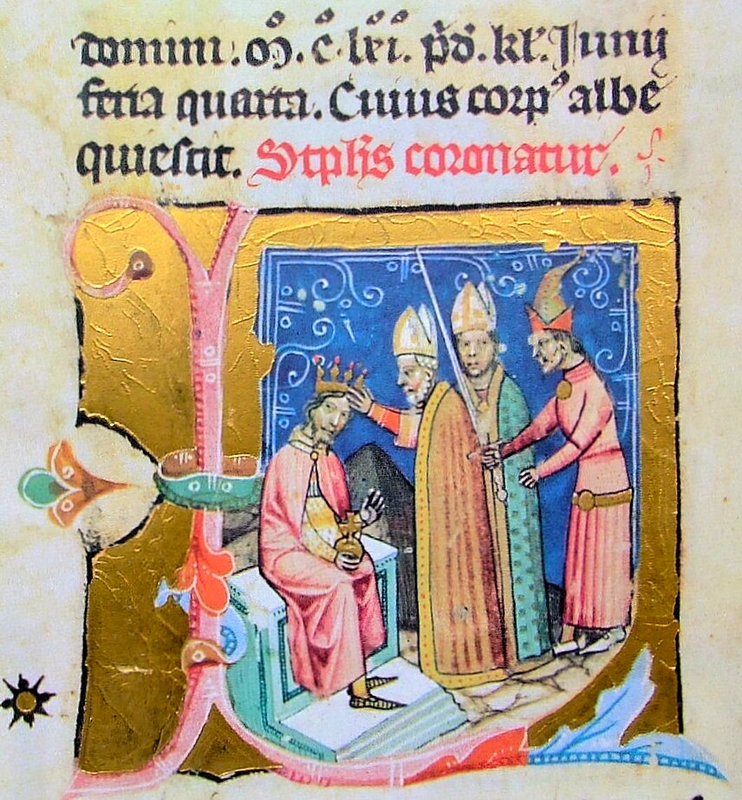 domini. mͦ. cͦ. lxiͦ. p̄d. kl̓. Junij
feria quarta. Cuius corpꝰ albe
quiescit. Stph̄s coronatur.